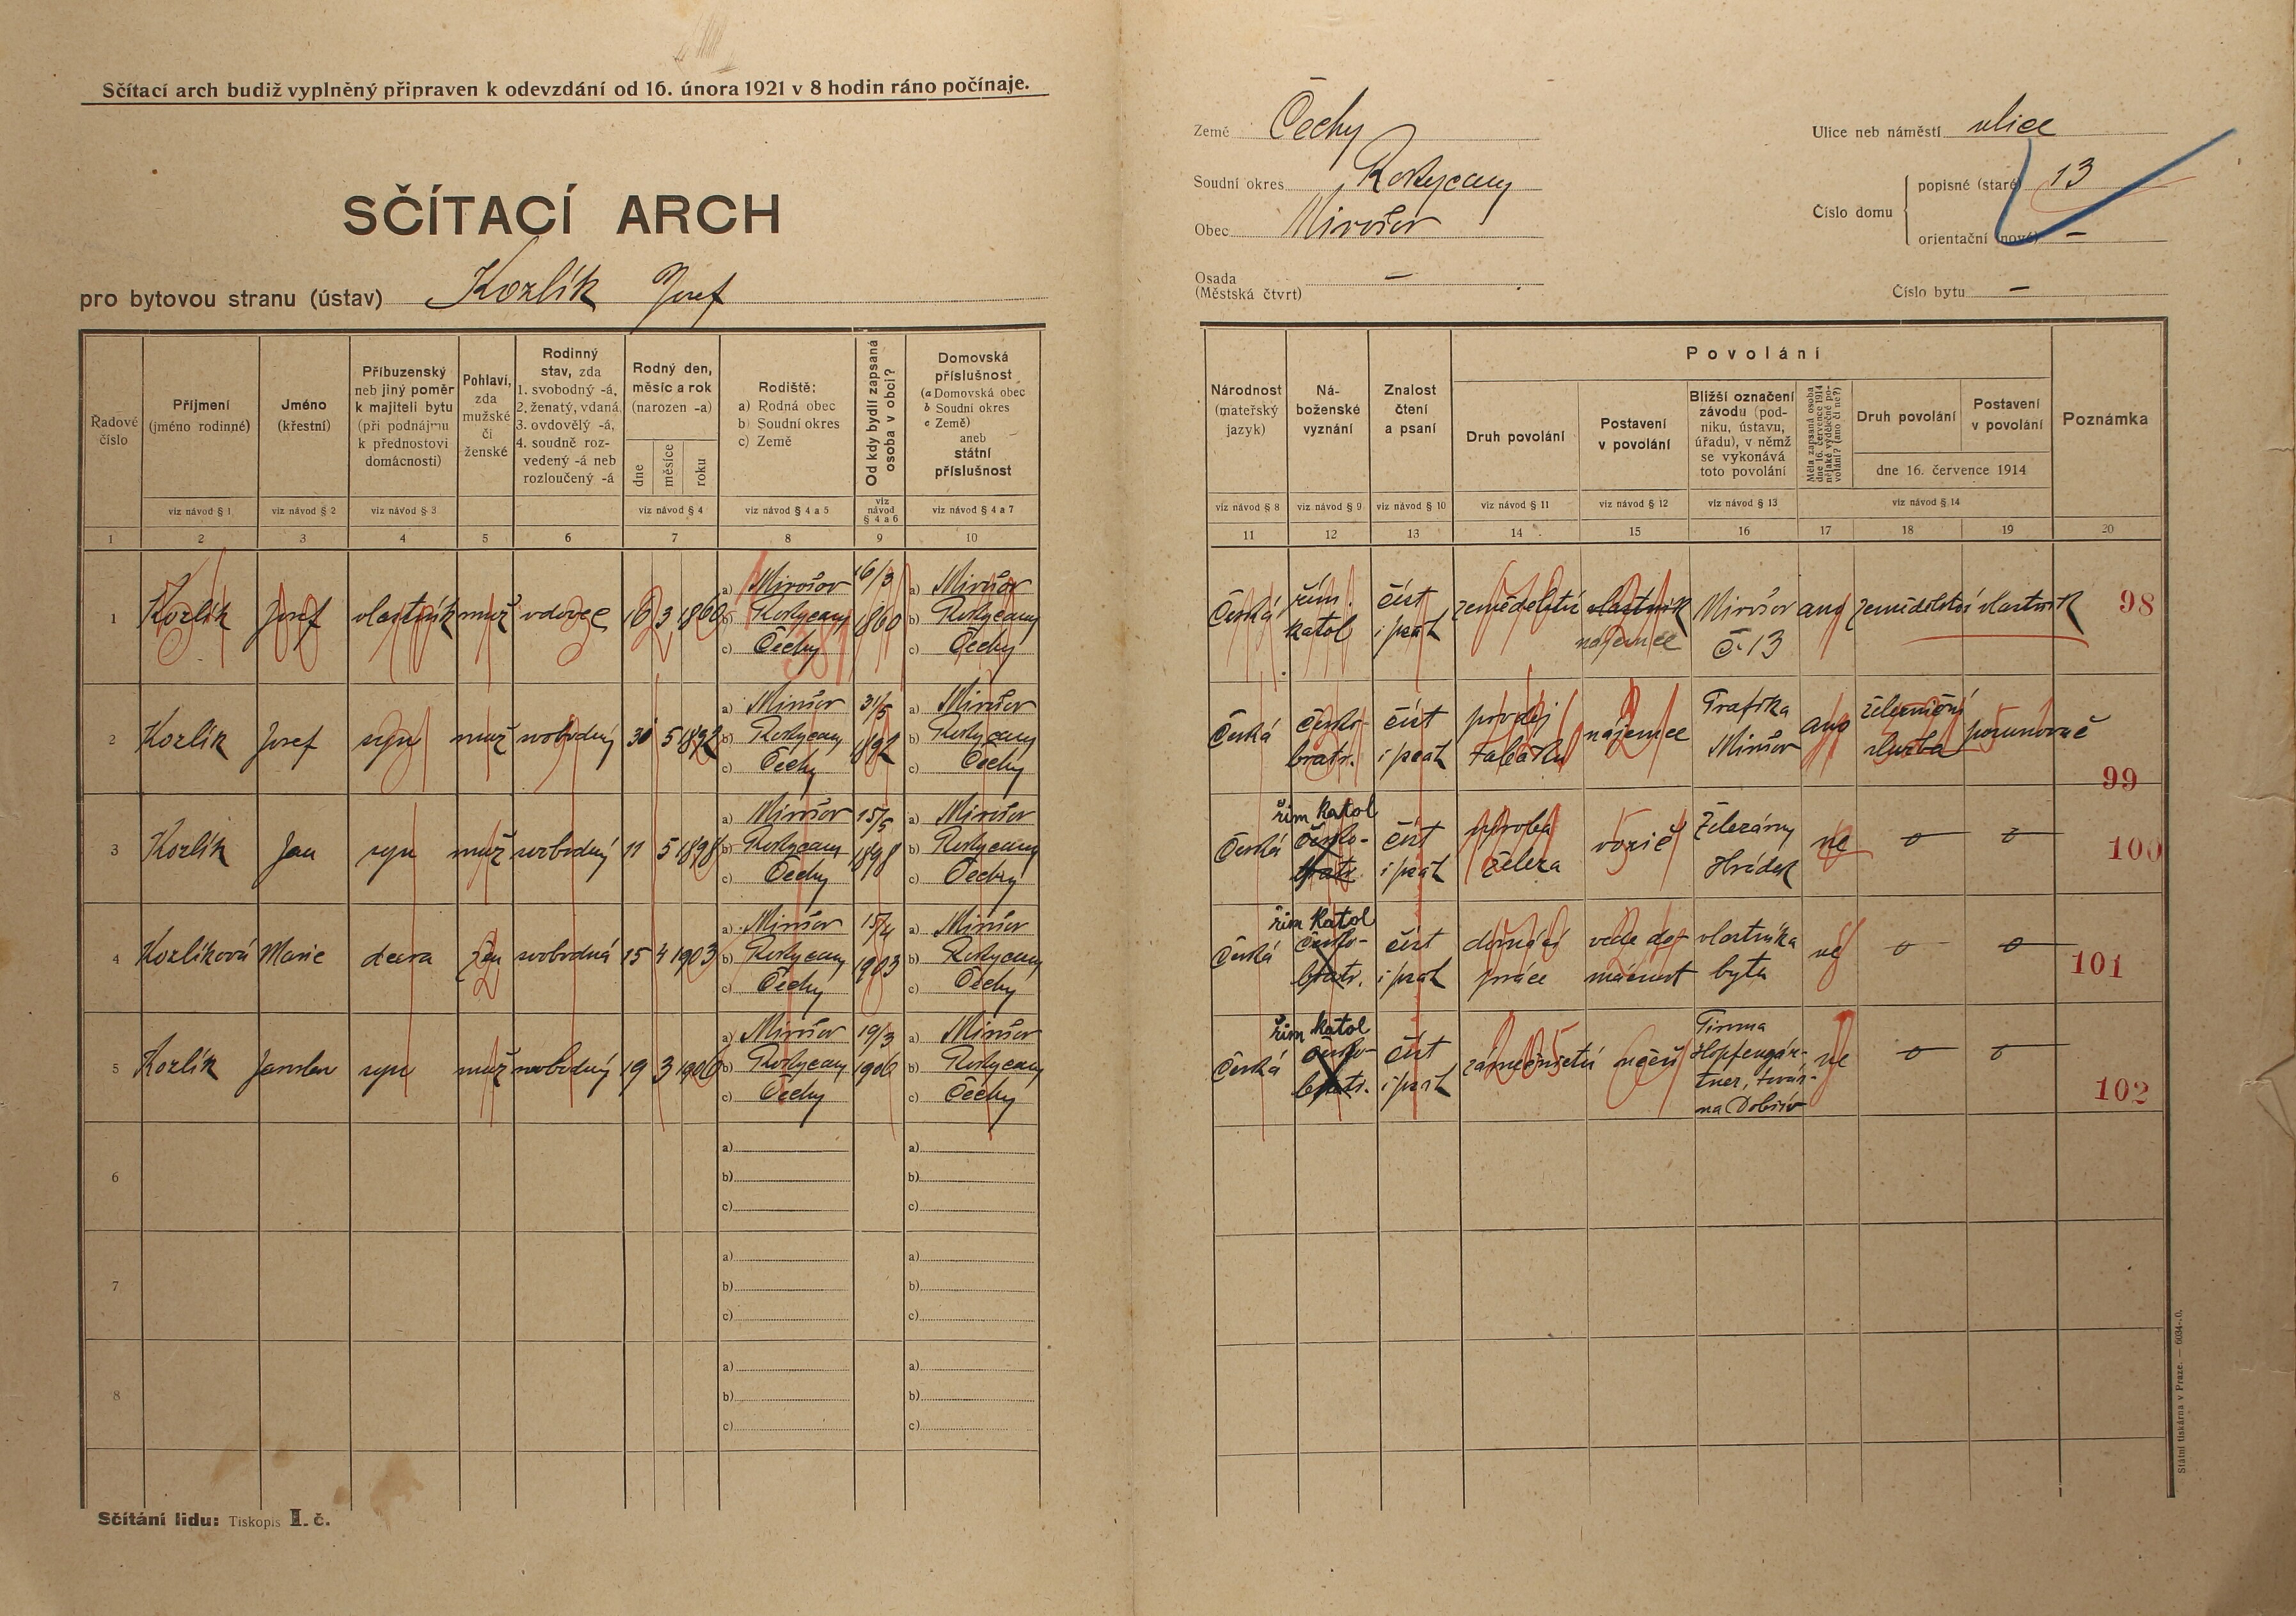 Sčítací arch budiž vyplněný připraven k odevzdání od 16. února 1921 v 8 hodin ráno počínaje.
SČÍTACÍ ARCH
pro bytovou stranu (ústav) Kozlík Josef
Země Čechy
Soudní okres Rokycany
Obec Mirošov
Osada
(Městská čtvrt) –
Ulice neb náměstí ulice
Číslo domu
popisné (staré) 13
orientační (nové) –
Číslo bytu –
Řadové číslo
Příjmení (jméno rodinné)
Jméno (křestní)
Příbuzenský neb jiný poměr k majiteli bytu (při podnájmu k přednostovi domácnosti)
Pohlaví, zda mužské či ženské
Rodinný stav, zda 1. svobodný -á, 2. ženatý, vdaná, 3. ovdovělý -á, 4. soudně rozvedený -á neb rozloučený -á
Rodný den, měsíc a rok (narozen -a)
dne měsíce roku
Rodiště: a) Rodná obec b) Soudní okres c) Země
Od kdy bydlí zapsaná osoba v obci?
Domovská příslušnost (a Domovská obec b Soudní okres c Země) aneb státní příslušnost
viz návod § 1 viz návod § 2 viz návod § 3 viz návod § 4 viz návod § 4 a 5 viz návod § 4 a 6 viz návod § 4 a 7
1 2 3 4 5 6 7 8 9 10
Národnost (mateřský jazyk)
Náboženské vyznání
Znalost čtení a psaní
Povolání
Druh povolání
Postavení v povolání
Bližší označení závodu (podniku, ústavu, úřadu), v němž se vykonává toto povolání
Měla zapsaná osoba dne 16. července 1914 nějaké výdělečné povolání? (ano či ne?)
Druh povolání
Postavení v povolání
dne 16. července 1914
Poznámka
viz návod § 8 viz návod § 9 viz návod § 10 viz návod § 11 viz návod § 12 viz návod § 13 viz návod § 14
11 12 13 14 15 16 17 18 19 20
1 Kozlík Josef vlastník muž vdovec 16 3 1860 a) Mirošov b) Rokycany c) Čechy 16/3 1860 a) Mirošov b) Rokycany c) Čechy
Česká řím. katol číst i psát zemědelství vlastník nájemce Mirošov č. 13 ano zemědelství vlastník 98
2 Kozlík Josef syn muž svobodný 5 1892 a) Mirošov b) Rokycany c) Čechy 31/5 1892 a) Mirošov b) Rokycany c) Čechy
Česká česko-bratr. číst i psát prodej tabáku nájemce Trafika Mirošov ano železniční služba 99
3 Kozlík Jan syn muž svobodný 11 5 1898 a) Mirošov b) Rokycany c) Čechy 15/5 1898 a) Mirošov b) Rokycany c) Čechy
Česká řím katol česko-bratr. číst i psát výroba železa vozič Železárny Hrádek ne 100
4 Kozlíková Marie dcera žen svobodná 15 4 1903 a) Mirošov b) Rokycany c) Čechy 15/4 1903 a) Mirošov b) Rokycany c) Čechy
Česká řím katol česko-bratr. číst i psát domácí práce vede domácnost vlastníka bytu ne 101
5 Kozlík Jaroslav syn muž svobodný 19 3 1906 a) Mirošov b) Rokycany c) Čechy 19/3 1906 a) Mirošov b) Rokycany c) Čechy
Česká řím katol česko-bratr. číst i psát zámečnictví učeň Firma Hopfengärtner, továrna Dobřív ne 102
6 a) b) c) a) b) c)
7 a) b) c) a) b) c)
8 a) b) c) a) b) c)
Sčítání lidu: Tiskopis I. č.
Státní tiskárna v Praze. — 6034-.0.